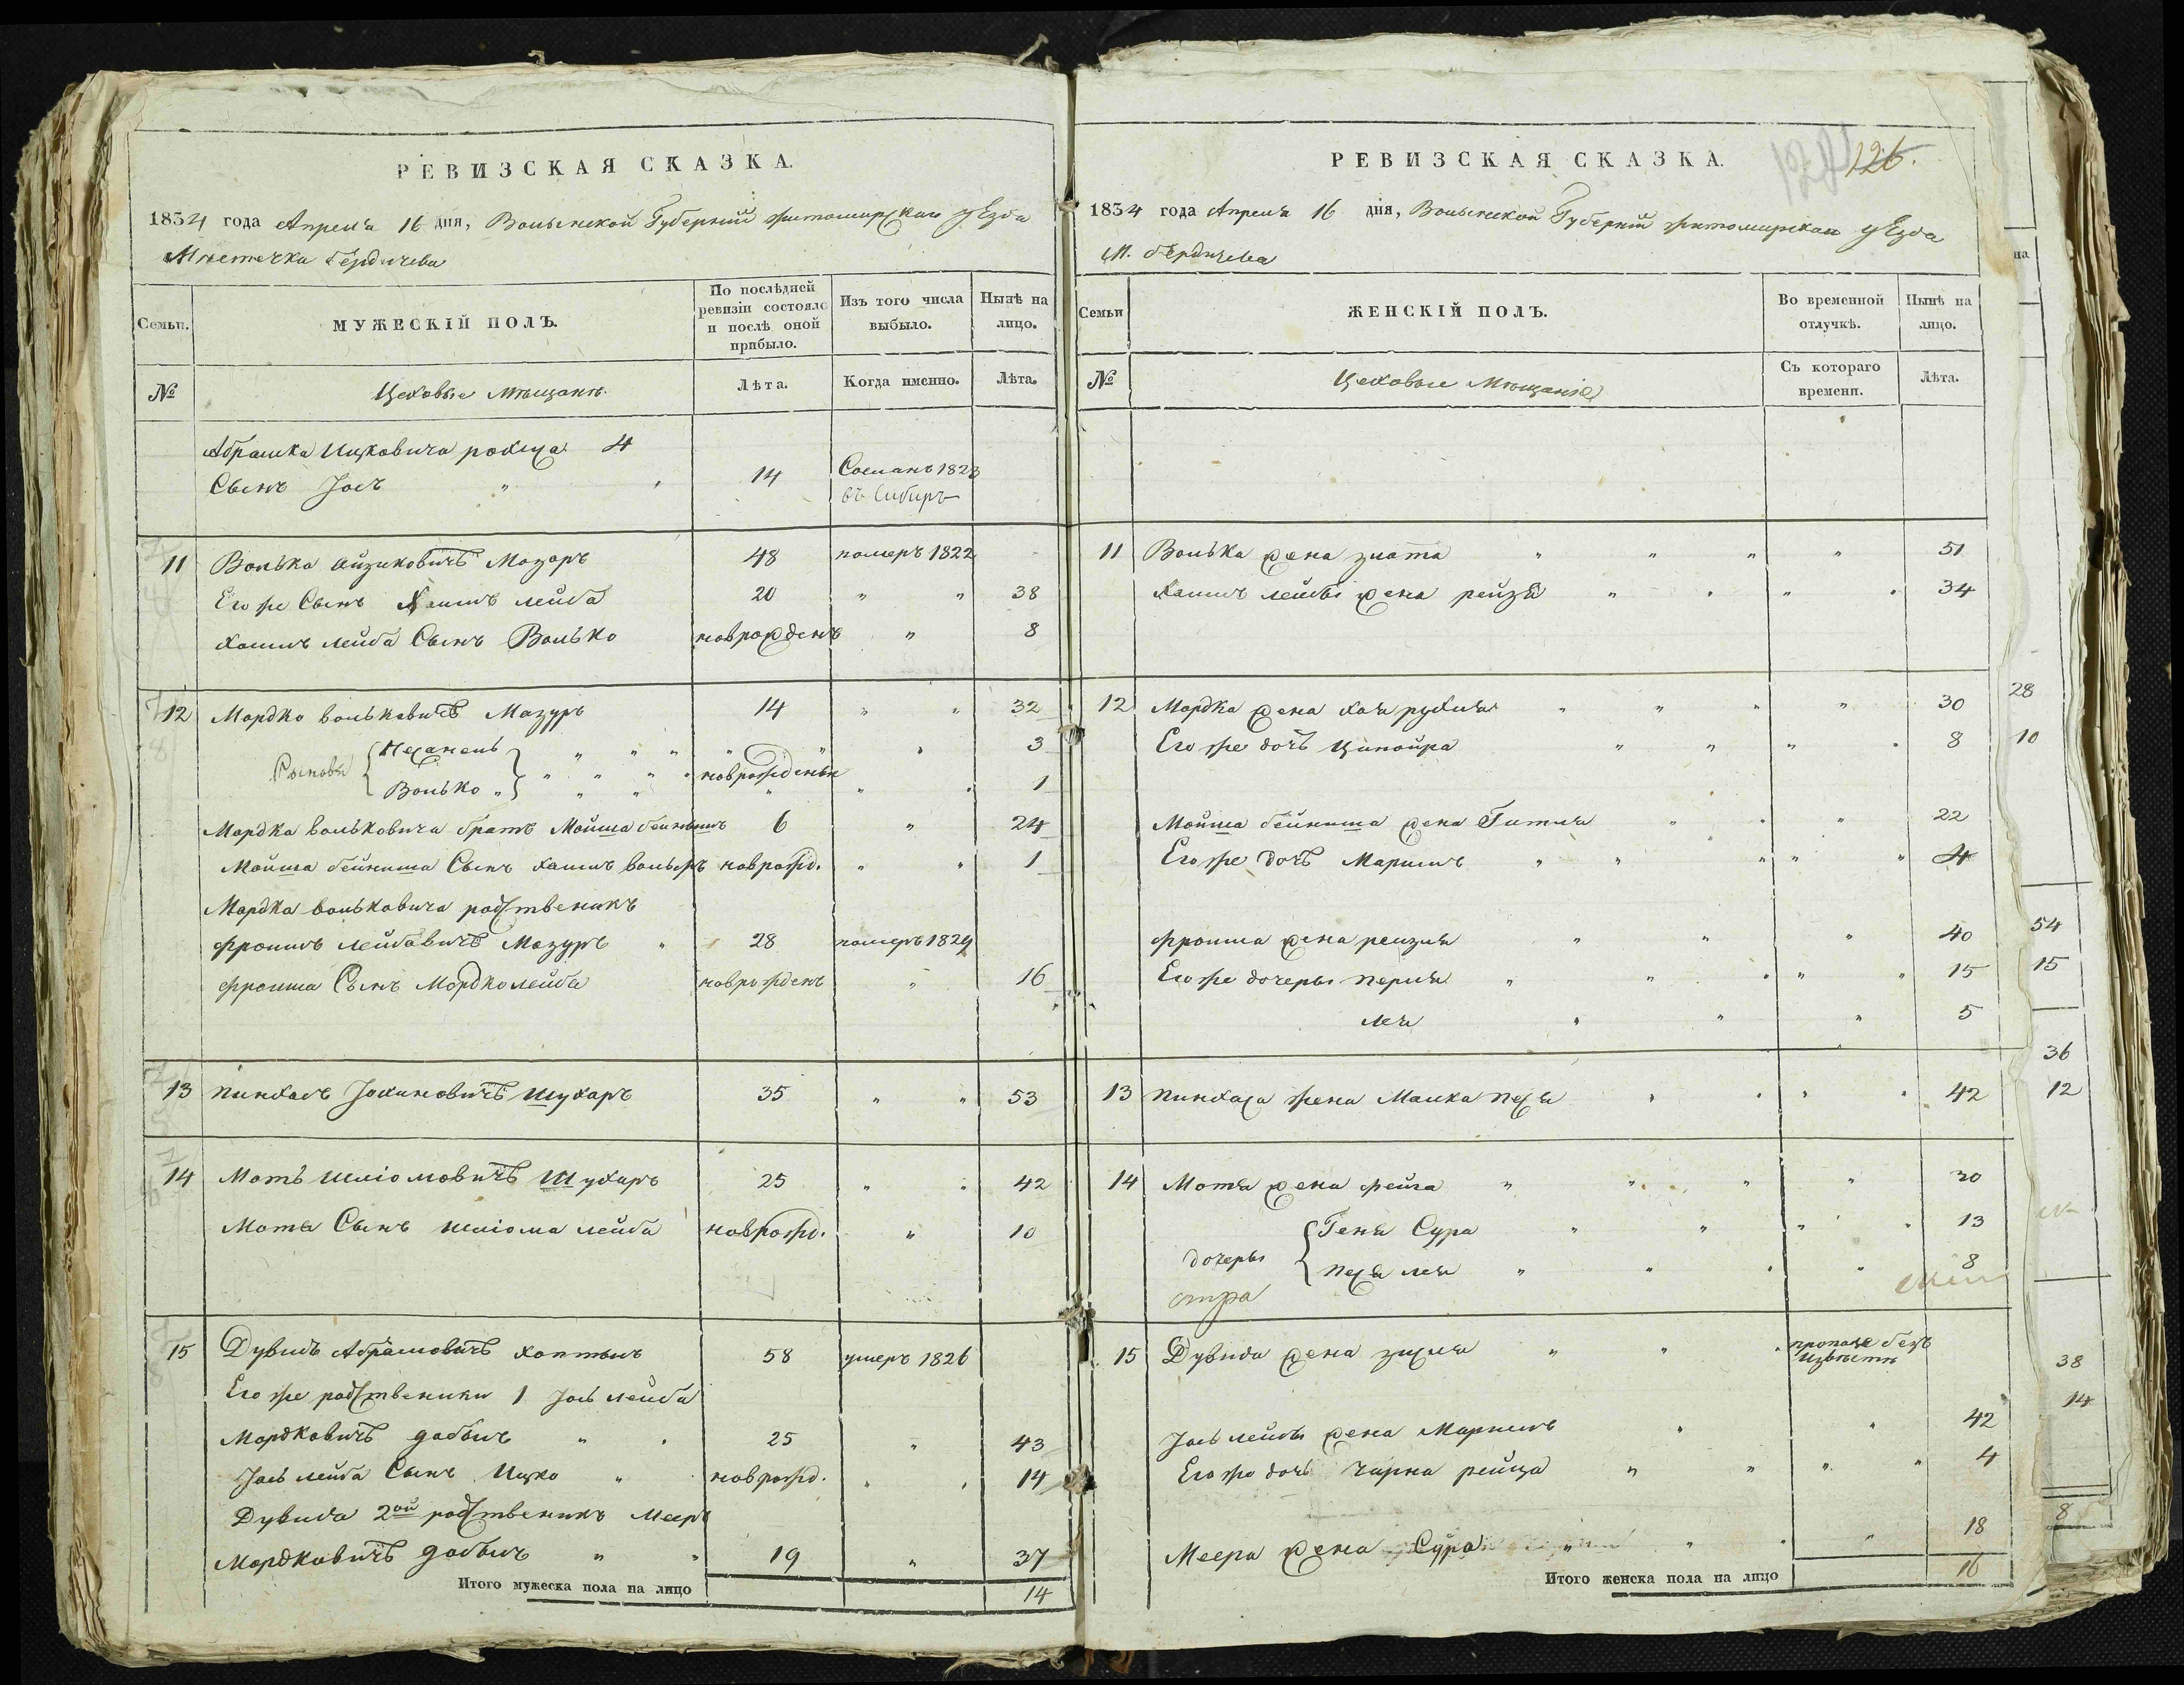 РЕВИЗСКАЯ СКАЗКА.
1834 года Апреля 16 дня, Волынской Губернии житомирскаго уезда
Местечка бердичева
Семьи. МУЖЕСКІЙ ПОЛЪ. По послѣдней ревизіи состояло и послѣ оной прибыло. Изъ того числа выбыло. Нынѣ на лицо.
№ Цеховые мѣщане. Лѣта. Когда именно. Лѣта.
Абрамка Ицковича 4
Сынъ Іосъ " 14 Сосланъ 1823
въ Сибирь
11 Волько Айзиковичъ Мазуръ 48 померъ 1822
Его же Сынъ Хаимъ лейба 20 " " 38
Хаимъ лейба Сынъ Волько новрожденъ " 8
12 Мордко вольковичъ Мазуръ 14 " " 32
Сыновья Несанель " " " " " " 3
Волько " новрожденны " 1
Мордка вольковича братъ Мойша бейнишъ 6 " 24
Мойша бейниша Сынъ хаимъ вольфъ новрожд. " " 1
Мордка вольковича родственикъ
фроимъ лейбовичъ Мазуръ " 28 померъ 1829
фроима Сынъ Мордко лейба новрожденъ " 16
13 пинхасъ Іохимовичъ шухаръ 35 " " 53
14 Моть шліомовичъ Шухаръ 25 " " 42
Мотя Сынъ шліома лейба новрожд. " 10
15 Дувидъ Абрамовичъ 58 умеръ 1826
Его же родственики 1 Іось лейба
Мордковичъ " 25 " 43
Іось лейба Сынъ Ицко " новрожд. " " 14
Дувида 2ой родственикъ Мееръ
Мордковичъ " " 19 " 37
Итого мужеска пола на лицо 14
РЕВИЗСКАЯ СКАЗКА. 126.
1834 года Апреля 16 дня, Волынской Губерніи житомирскаго уезда
М. бердичева
Семьи ЖЕНСКІЙ ПОЛЪ. Во временной отлучкѣ. Нынѣ на лицо.
№ Цеховые Мещане Съ котораго времени. Лѣта.
11 Волька жена злота " " " " 51
Хаимъ лейбы жена рейзя " " " " 34
12 Мордка жена хая рухля " " " " 30
Его же дочь Ципойра " " " " 8
Мойша бейниша жена Гитля " " " 22
Его же дочь Маримъ " " " " " 4
фроима жена рейзля " " " 40
Его же дочеры перля " " " " " 15
лея " " " 5
13 пинхаса жена Малка песя " " " " 42
14 Мотя жена фейга " " " " 30
дочеры Геня Сура " " " " " 13
песя лея " " " " 8
15 Дувида жена зисля " " пропала безъ
извѣстн
Іось лейбы жена Маримъ " " 42
Его же дочь чарна рейза " " " " 4
Меера жена Сура " " " " 18
Итого женска пола на лицо 16
на
28
10
54
15
36
12
38
14
8